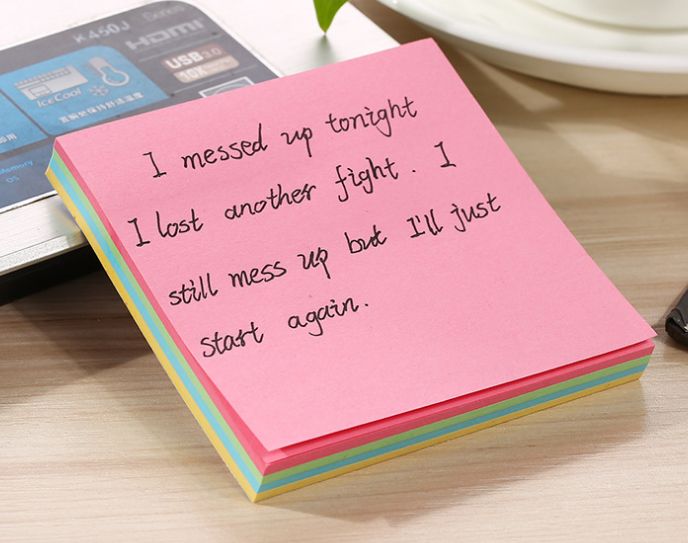 K450J Series
HDMI
USB 3.0
10X
IceCool
Memory
OS
I messed up tonight
I lost another fight. I
still mess up but I'll just
start again.